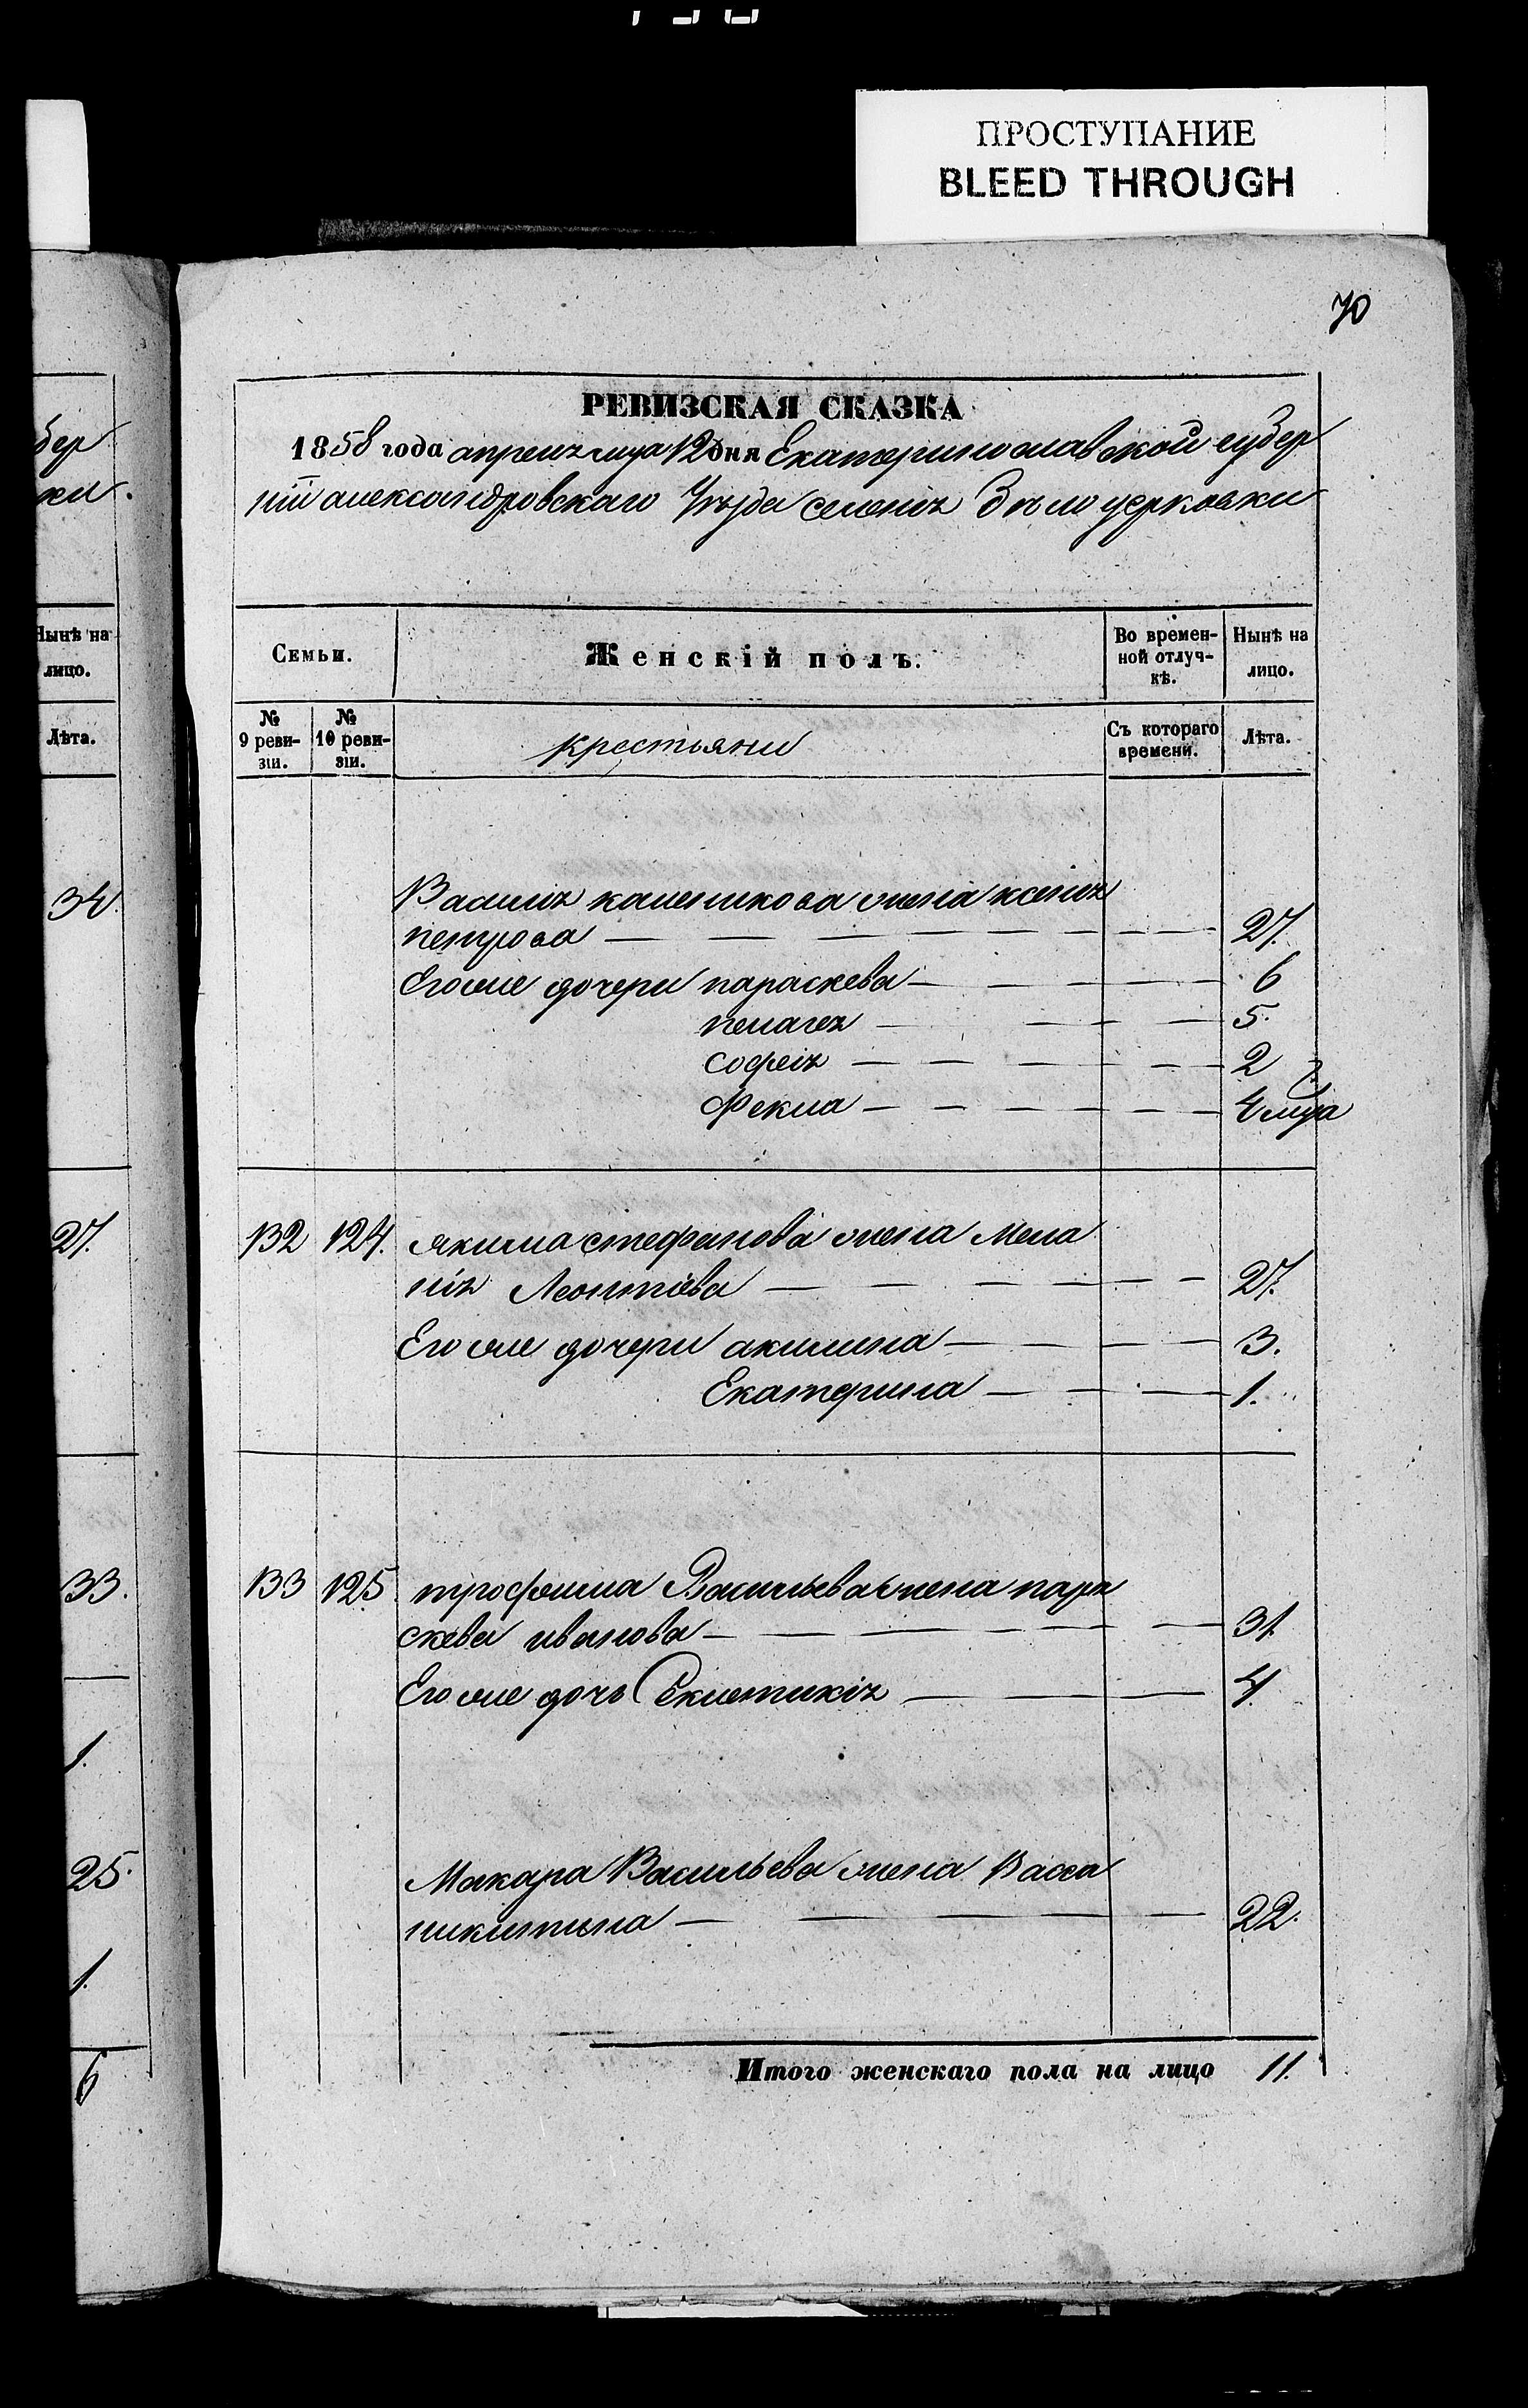 ПРОСТУПАНИЕ
BLEED THROUGH
70
РЕВИЗСКАЯ СКАЗКА
1858 года апреля мца 12 дня Екатеринославской губер
нiи александровскаго Уѣзда селенiя Бѣлоцерковки
бер
ки.
Нынѣ на
лицо.
Лѣта.
34.
27.
33.
1.
25.
1.
6
Семьи.
Женскій полъ.
Во времен-
ной отлуч-
кѣ.
Нынѣ на
лицо.
№
9 реви-
зіи.
№
10 реви-
зіи.
крестьяни
Съ котораго
времени.
Лѣта.
Василiя калешкова жена ксенiя
петрова 27.
Его же дочери параскева 6
пелагея 5.
софеiя 2
Фекла 4 мца
132 124. якима стефанова жена Мела
нiя Леонтiева 27.
Его же дочери акилина 3.
Екатерина 1.
133 125. трофима Васильева жена пара
скева иванова 31.
Его же дочь Секлетикiя 4.
Макара Васильева жена Васса
никитина 22.
Итого женскаго пола на лицо 11.